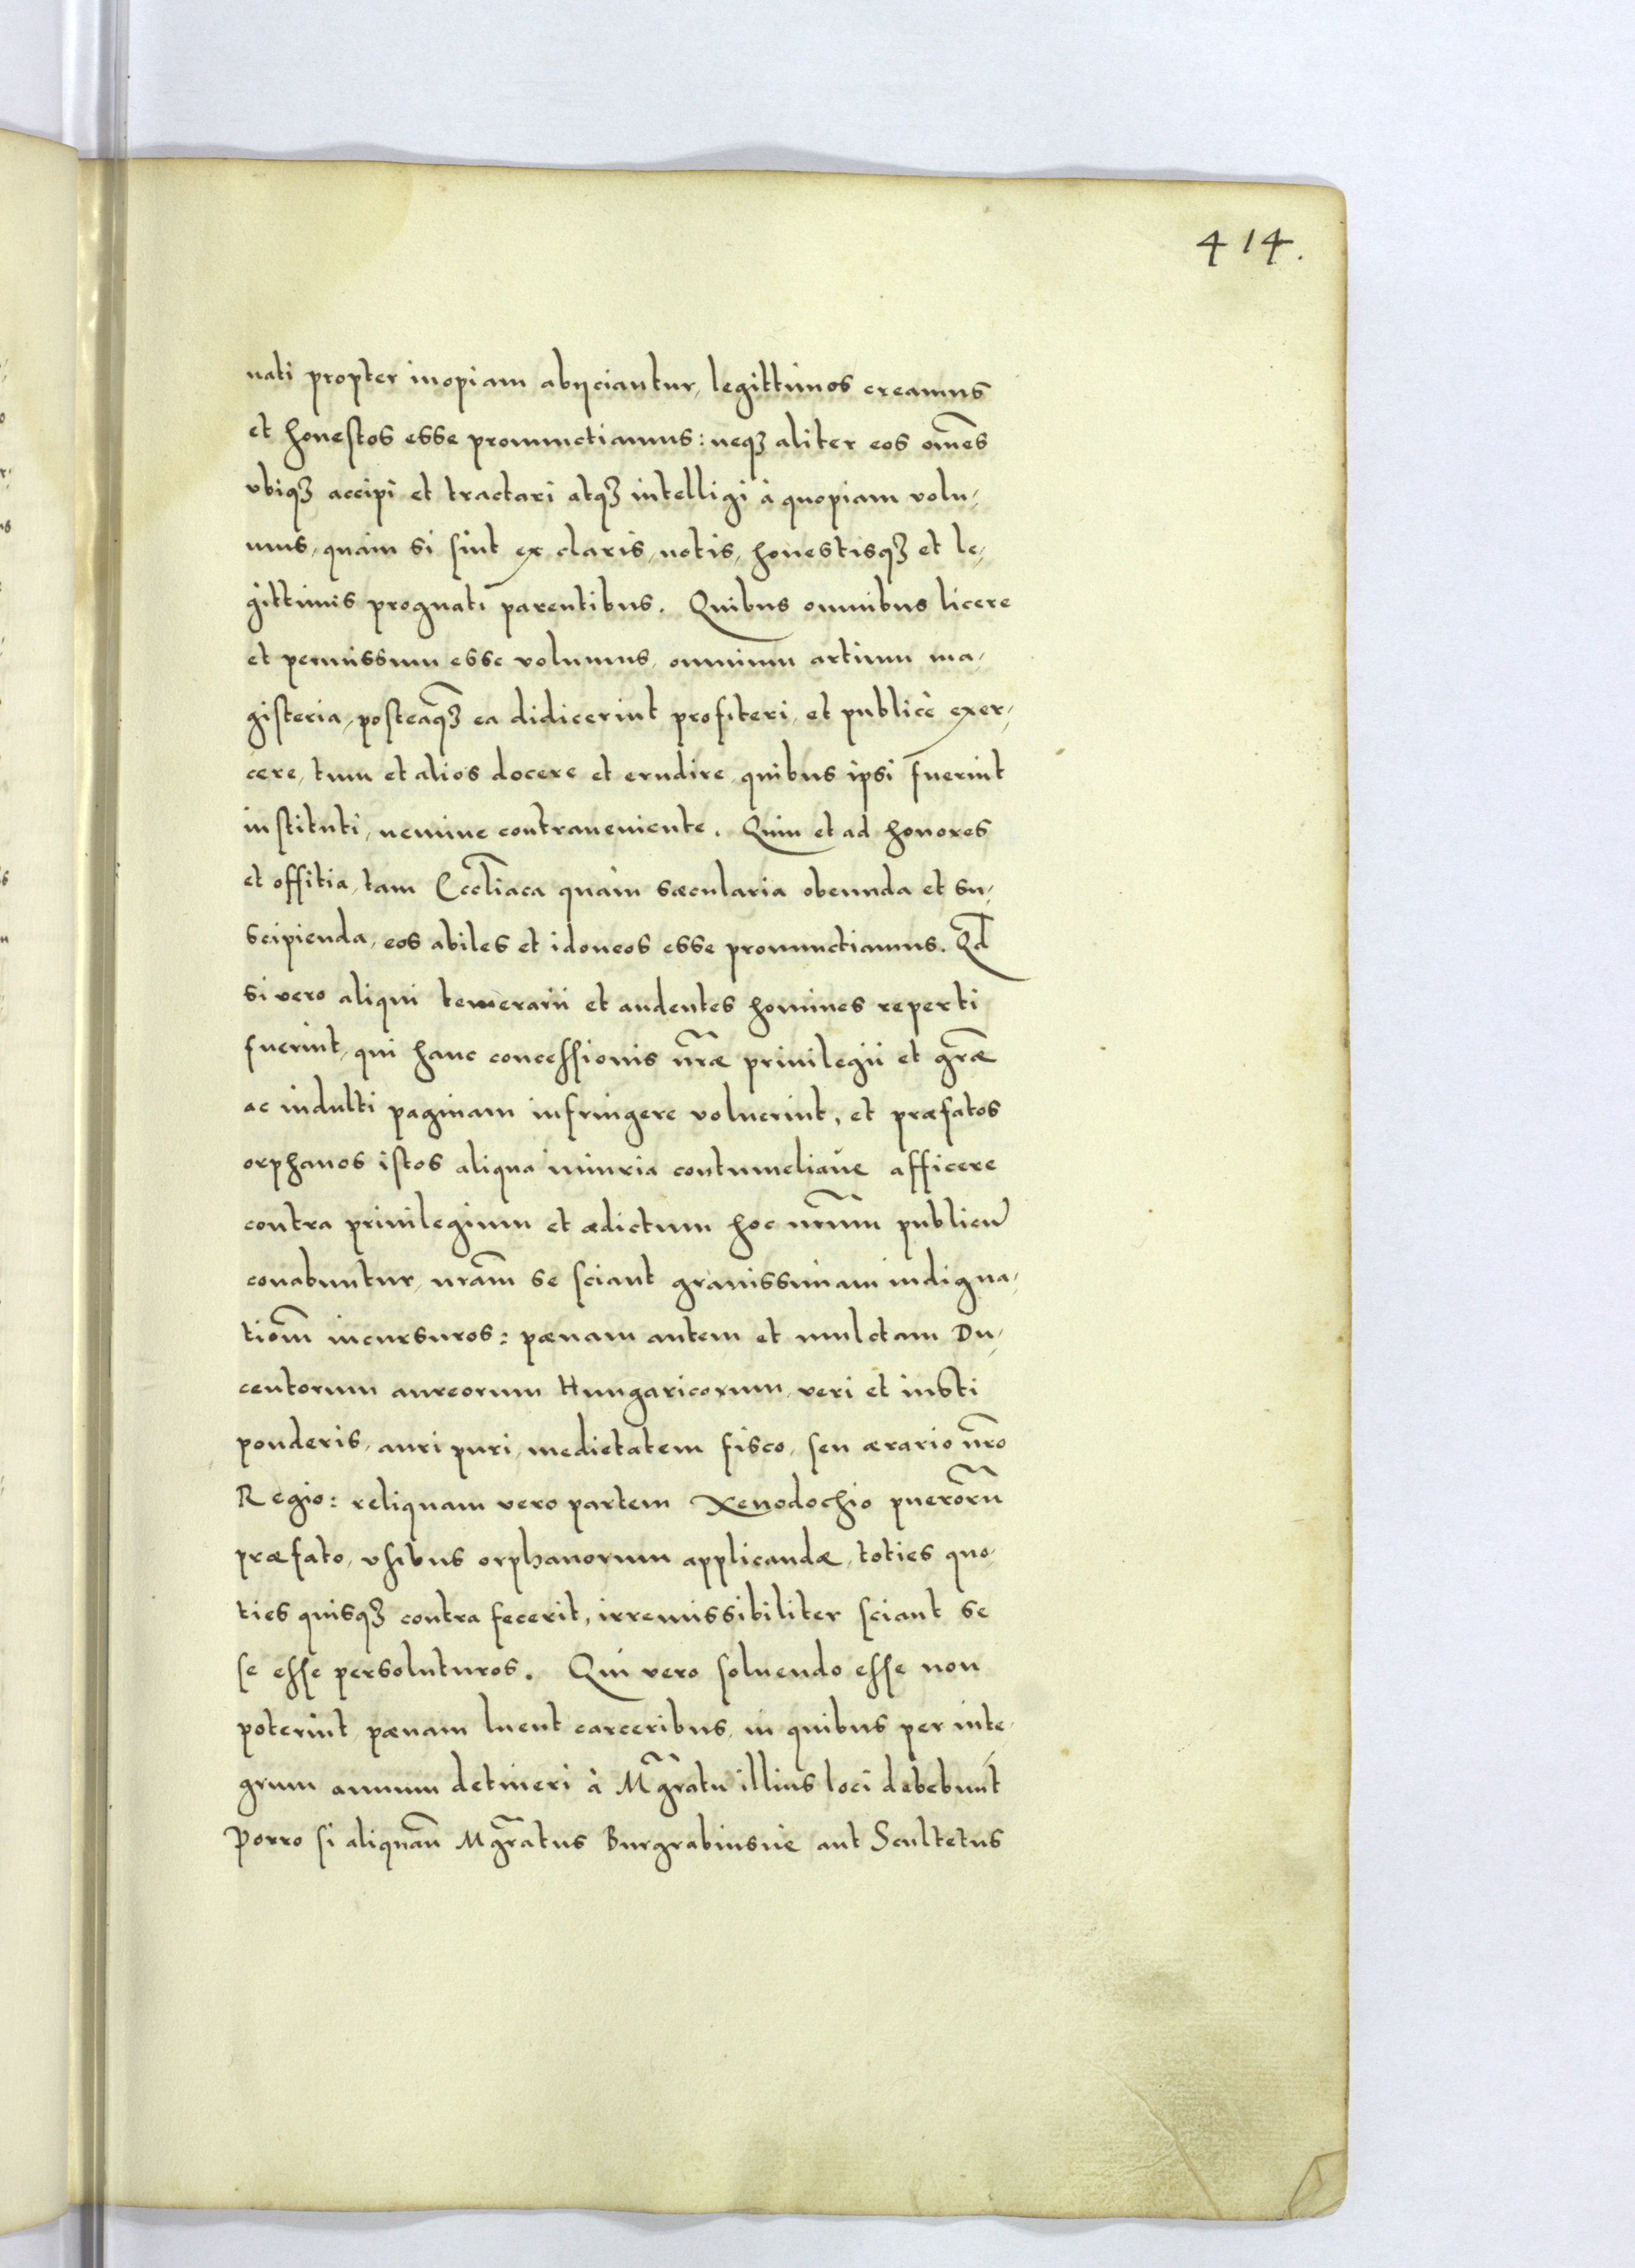 414.
nati propter inopiam abijciantur, legittimos creamus
et honestos esse pronunctiamus: neqꝫ aliter eos om̃es
vbiqꝫ accipi et tractari atqꝫ intelligi à quopiam volu,
mus, quàm si sint ex claris, notis, honestisqꝫ et le,
gittimis prognati parentibus. Quibus omnibus licere
et permissum esse volumus, omnium artium ma,
gisteria, posteaq̃ꝫ ea didicerint profiteri, et publicè exer,
cere, tum et alios docere et erudire, quibus ipsi fuerint
instituti, nemine contraueniente. Quin et ad honores
et offitia, tam Eccl̃iaca quàm sæcularia obeunda et su,
scipienda, eos abiles et idoneos esse pronunctiamus. Qd̃
si vero aliqui temerarii et audentes homines reperti
fuerint, qui hanc concessionis nr̃æ priuilegii et gr̃æ
ac indulti paginam infringere voluerint, et præfatos
orphanos istos aliqua iniuria contumeliaue afficere
contra priuilegium et ædictum hoc nr̃um publicũ
conabuntur, nr̃am se sciant grauissimam indigna,
tiom̃ incursuros: pænam autem et mulctam Du,
centorum aureorum Hungaricorum, veri et iusti
ponderis, auri puri, medietatem fisco, seu ærario nr̃o
Regio: reliquam vero partem Xenodochio puerorũ
præfato, vsibus orphanorum applicandæ, toties quo,
ties quisqꝫ contra fecerit, irremissibiliter sciant se
se esse persoluturos. Qui vero soluendo esse non
poterint, pænam luent carceribus, in quibus per inte,
grum annum detineri à Mg̃ratu illius loci debebunt
Porro si aliquañ Mg̃ratus Burgrabiusue aut Scultetus